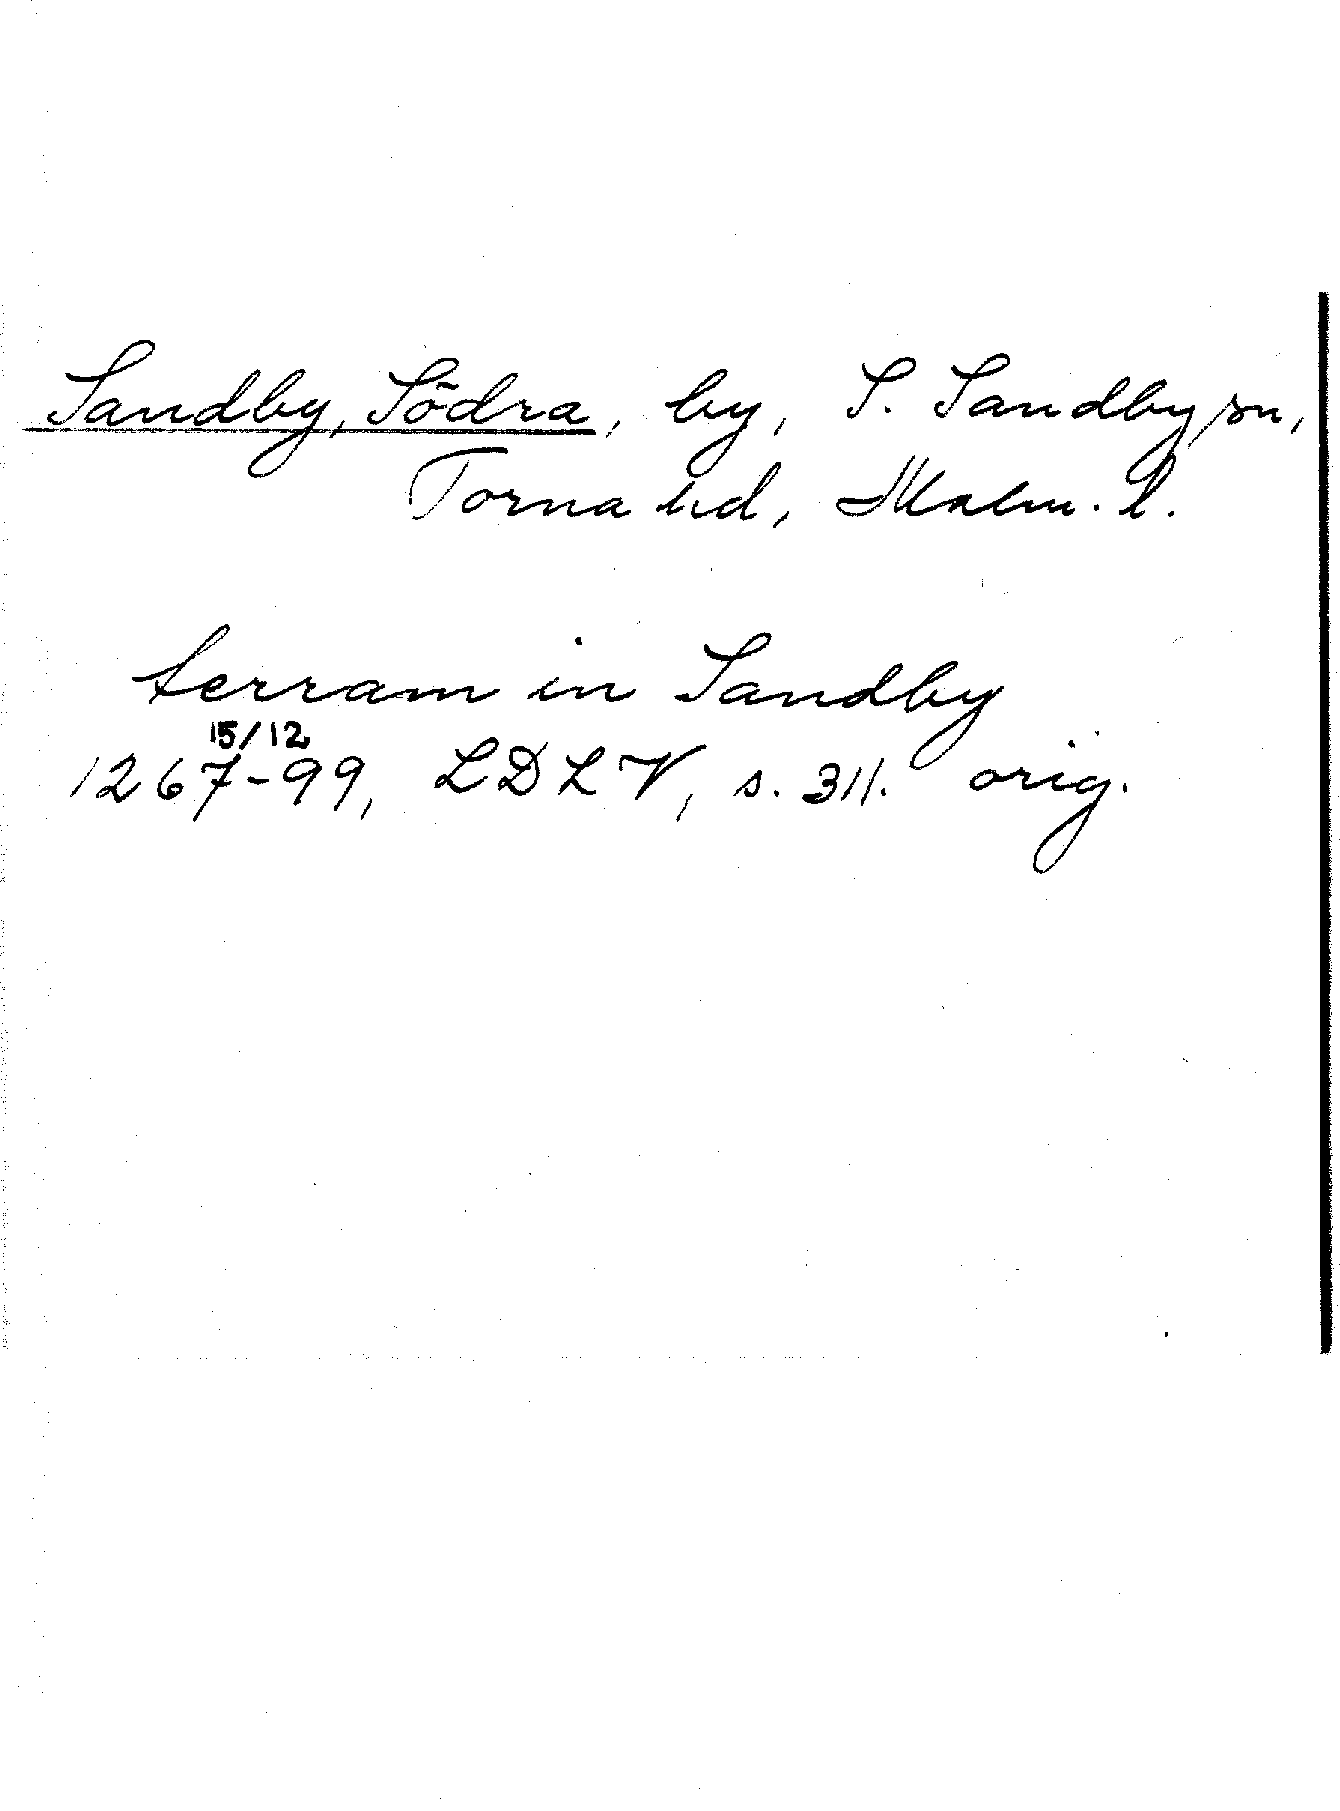 Sandby, Södra, by, S. Sandby sn,
Torna hd, Malm. l.
terram in Sandby
15/12
1267-99, LDLV, s. 311. orig.